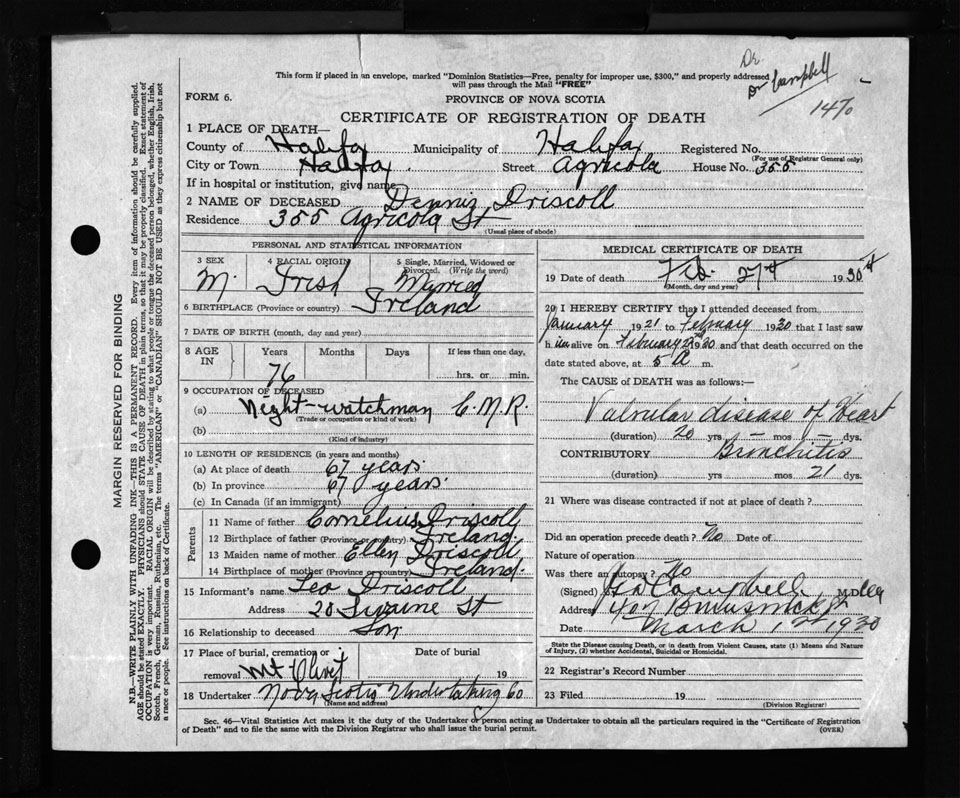 Dr.
Dr Campbell
This form if placed in an envelope, marked "Dominion Statistics—Free, penalty for improper use, $300," and properly addressed
will pass through the Mail "FREE"
FORM 6.
PROVINCE OF NOVA SCOTIA
CERTIFICATE OF REGISTRATION OF DEATH
1 PLACE OF DEATH—
County of Halifax Municipality of Halifax Registered No.
(For use of Registrar General only)
City or Town Halifax. Street Agricola House No. 355
If in hospital or institution, give name
2 NAME OF DECEASED Dennis Driscoll
Residence 355 Agricola St
(Usual place of abode)
PERSONAL AND STATISTICAL INFORMATION
3 SEX M. 4 RACIAL ORIGIN Irish 5 Single, Married, Widowed or Divorced. (Write the word) Married
6 BIRTHPLACE (Province or country) Ireland
7 DATE OF BIRTH (month, day and year)
8 AGE IN Years Months Days If less than one day,
76 hrs. or min.
9 OCCUPATION OF DECEASED
(a) Night-watchman C.N.R.
(Trade or occupation or kind of work)
(b)
(Kind of industry)
10 LENGTH OF RESIDENCE (in years and months)
(a) At place of death 67 years
(b) In province 67 years.
(c) In Canada (if an immigrant)
Parents
11 Name of father Cornelius Driscoll
12 Birthplace of father (Province or country) Ireland.
13 Maiden name of mother Ellen Driscoll
14 Birthplace of mother (Province or country) Ireland.
15 Informant's name Leo Driscoll
Address 20 St
16 Relationship to deceased Son
17 Place of burial, cremation or removal Mt Olivet Date of burial 19
18 Undertaker Nova Scotia Undertaking Co
(Name and address)
MEDICAL CERTIFICATE OF DEATH
19 Date of death Feb. 27th 1930
(Month, day and year)
20 I HEREBY CERTIFY that I attended deceased from
January 1921 to February 1930 that I last saw
him alive on February 1930 and that death occurred on the
date stated above, at 5 A m.
The CAUSE of DEATH was as follows:—
Valvular disease of Heart
(duration) 20 yrs. — mos. — dys.
CONTRIBUTORY Bronchitis
(duration) yrs mos 21 dys.
21 Where was disease contracted if not at place of death?
Did an operation precede death? No Date of
Nature of operation
Was there an autopsy? No
(Signed) Campbell M.D.
Address 407 Brunswick St
Date March 1st 1930
State the Disease causing Death, or in death from Violent Causes, state (1) Means and Nature
of Injury, (2) whether Accidental, Suicidal or Homicidal.
22 Registrar's Record Number
23 Filed 19
(Division Registrar)
Sec. 46—Vital Statistics Act makes it the duty of the Undertaker or person acting as Undertaker to obtain all the particulars required in the "Certificate of Registration
of Death" and to file the same with the Division Registrar who shall issue the burial permit.
(OVER)
MARGIN RESERVED FOR BINDING
N.B.—WRITE PLAINLY WITH UNFADING INK—THIS IS A PERMANENT RECORD. Every item of information should be carefully supplied.
AGE should be stated EXACTLY. PHYSICIANS should STATE CAUSE OF DEATH in plain terms, so that it may be properly classified. Exact statement of
OCCUPATION is very important. RACIAL ORIGIN will be described by stating to what people or tongue the deceased person belonged, whether English, Irish,
Scotch, French, German, Russian, Ruthenian, etc. The terms "AMERICAN" or "CANADIAN" SHOULD NOT BE USED as they express citizenship but not
a race or people. See instructions on back of Certificate.